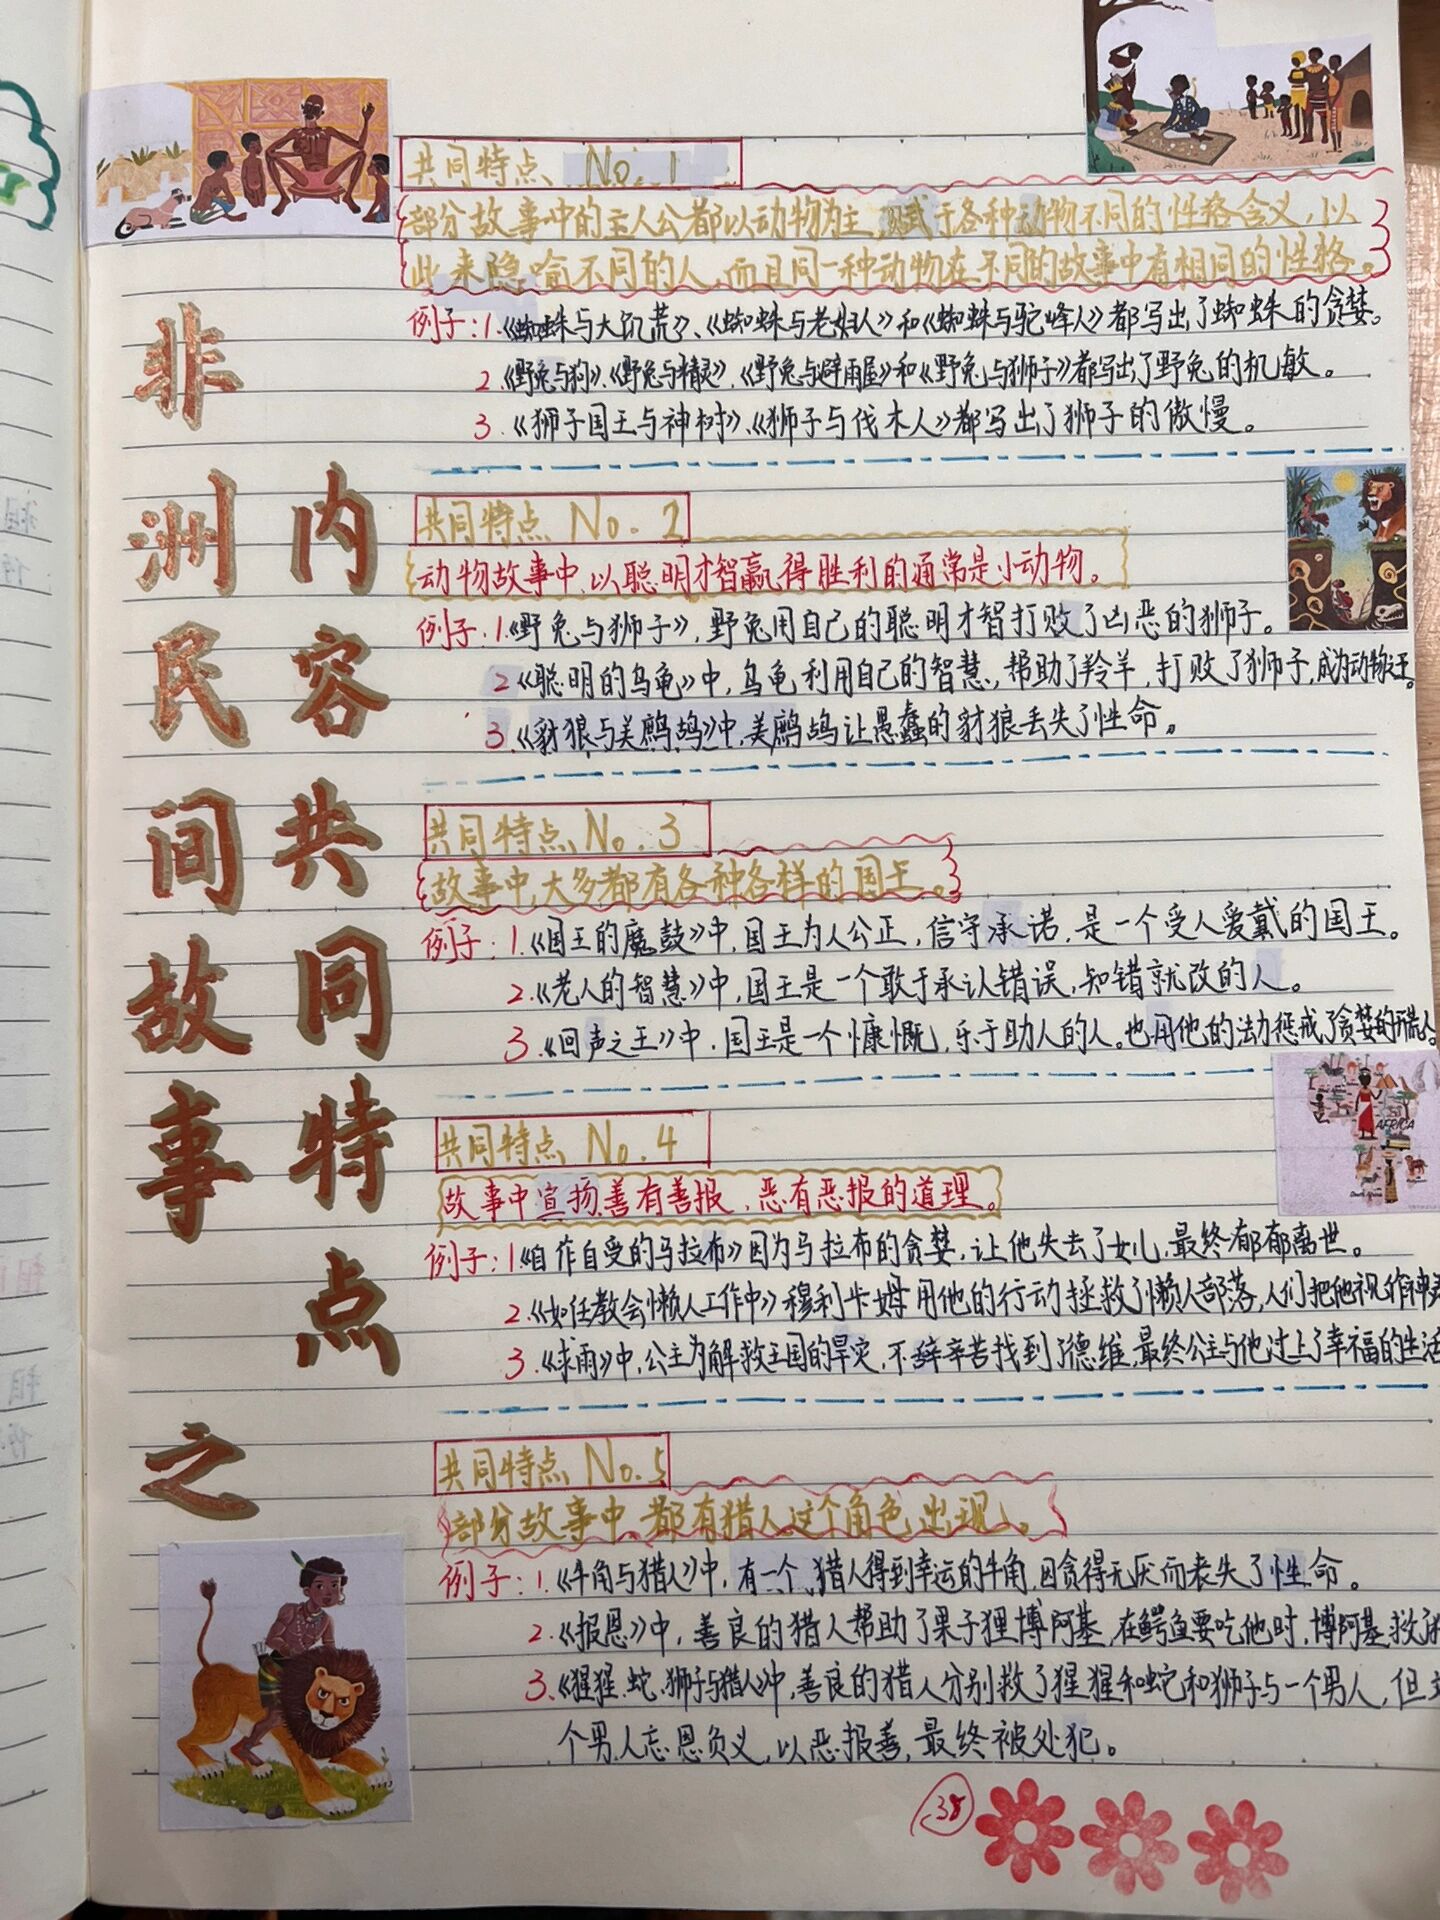 非洲民间故事之
内容共同特点
共同特点 No.1
部分故事中的主人公都以动物为主,赋于各种动物不同的性格含义,以
此来隐喻不同的人,而且同一种动物在不同的故事中有相同的性格。
例子:1.《蜘蛛与大饥荒》、《蜘蛛与老妇人》和《蜘蛛与驼峰人》都写出了蜘蛛的贪婪。
2.《野兔与狗》、《野兔与精灵》、《野兔与避雨屋》和《野兔与狮子》都写出了野兔的机敏。
3.《狮子国王与神树》、《狮子与伐木人》都写出了狮子的傲慢。
共同特点 No.2
动物故事中,以聪明才智赢得胜利的通常是小动物。
例子:1.《野兔与狮子》,野兔用自己的聪明才智打败了凶恶的狮子。
2《聪明的乌龟》中,乌龟利用自己的智慧,帮助了羚羊,打败了狮子,成为动物之王。
3.《豺狼与美鹧鸪》中,美鹧鸪让愚蠢的豺狼丢失了性命。
共同特点 No.3
故事中,大多都有各种各样的国王。
例子:1.《国王的魔鼓》中,国王为人公正,信守承诺,是一个受人爱戴的国王。
2.《老人的智慧》中,国王是一个敢于承认错误,知错就改的人。
3.《回声之王》中,国王是一个慷慨,乐于助人的人。也用他的法力惩戒了贪婪的
共同特点 No.4
故事中宣扬善有善报,恶有恶报的道理。
例子:1《自作自受的马拉布》因为马拉布的贪婪,让他失去了女儿,最终郁郁离世。
2.《如何教会懒人工作中》穆利卡姆用他的行动拯救了懒人部落,人们把他视作神
3.《求雨》中,公主为解救王国的旱灾,不辞辛苦找到了德维,最终公主与他过上了幸福的生活
共同特点 No.5
部分故事中,都有猎人这个角色出现。
例子:1.《牛角与猎人》中,有一个猎人得到幸运的牛角,因贪得无厌而丧失了性命。
2.《报恩》中,善良的猎人帮助了果子狸博阿基,在鳄鱼要吃他时,博阿基救
3.《猩猩、蛇、狮子与猎人》中,善良的猎人分别救了猩猩和蛇和狮子与一个男人,但
个男人忘恩负义,以恶报善,最终被处犯。
38
AFRICA